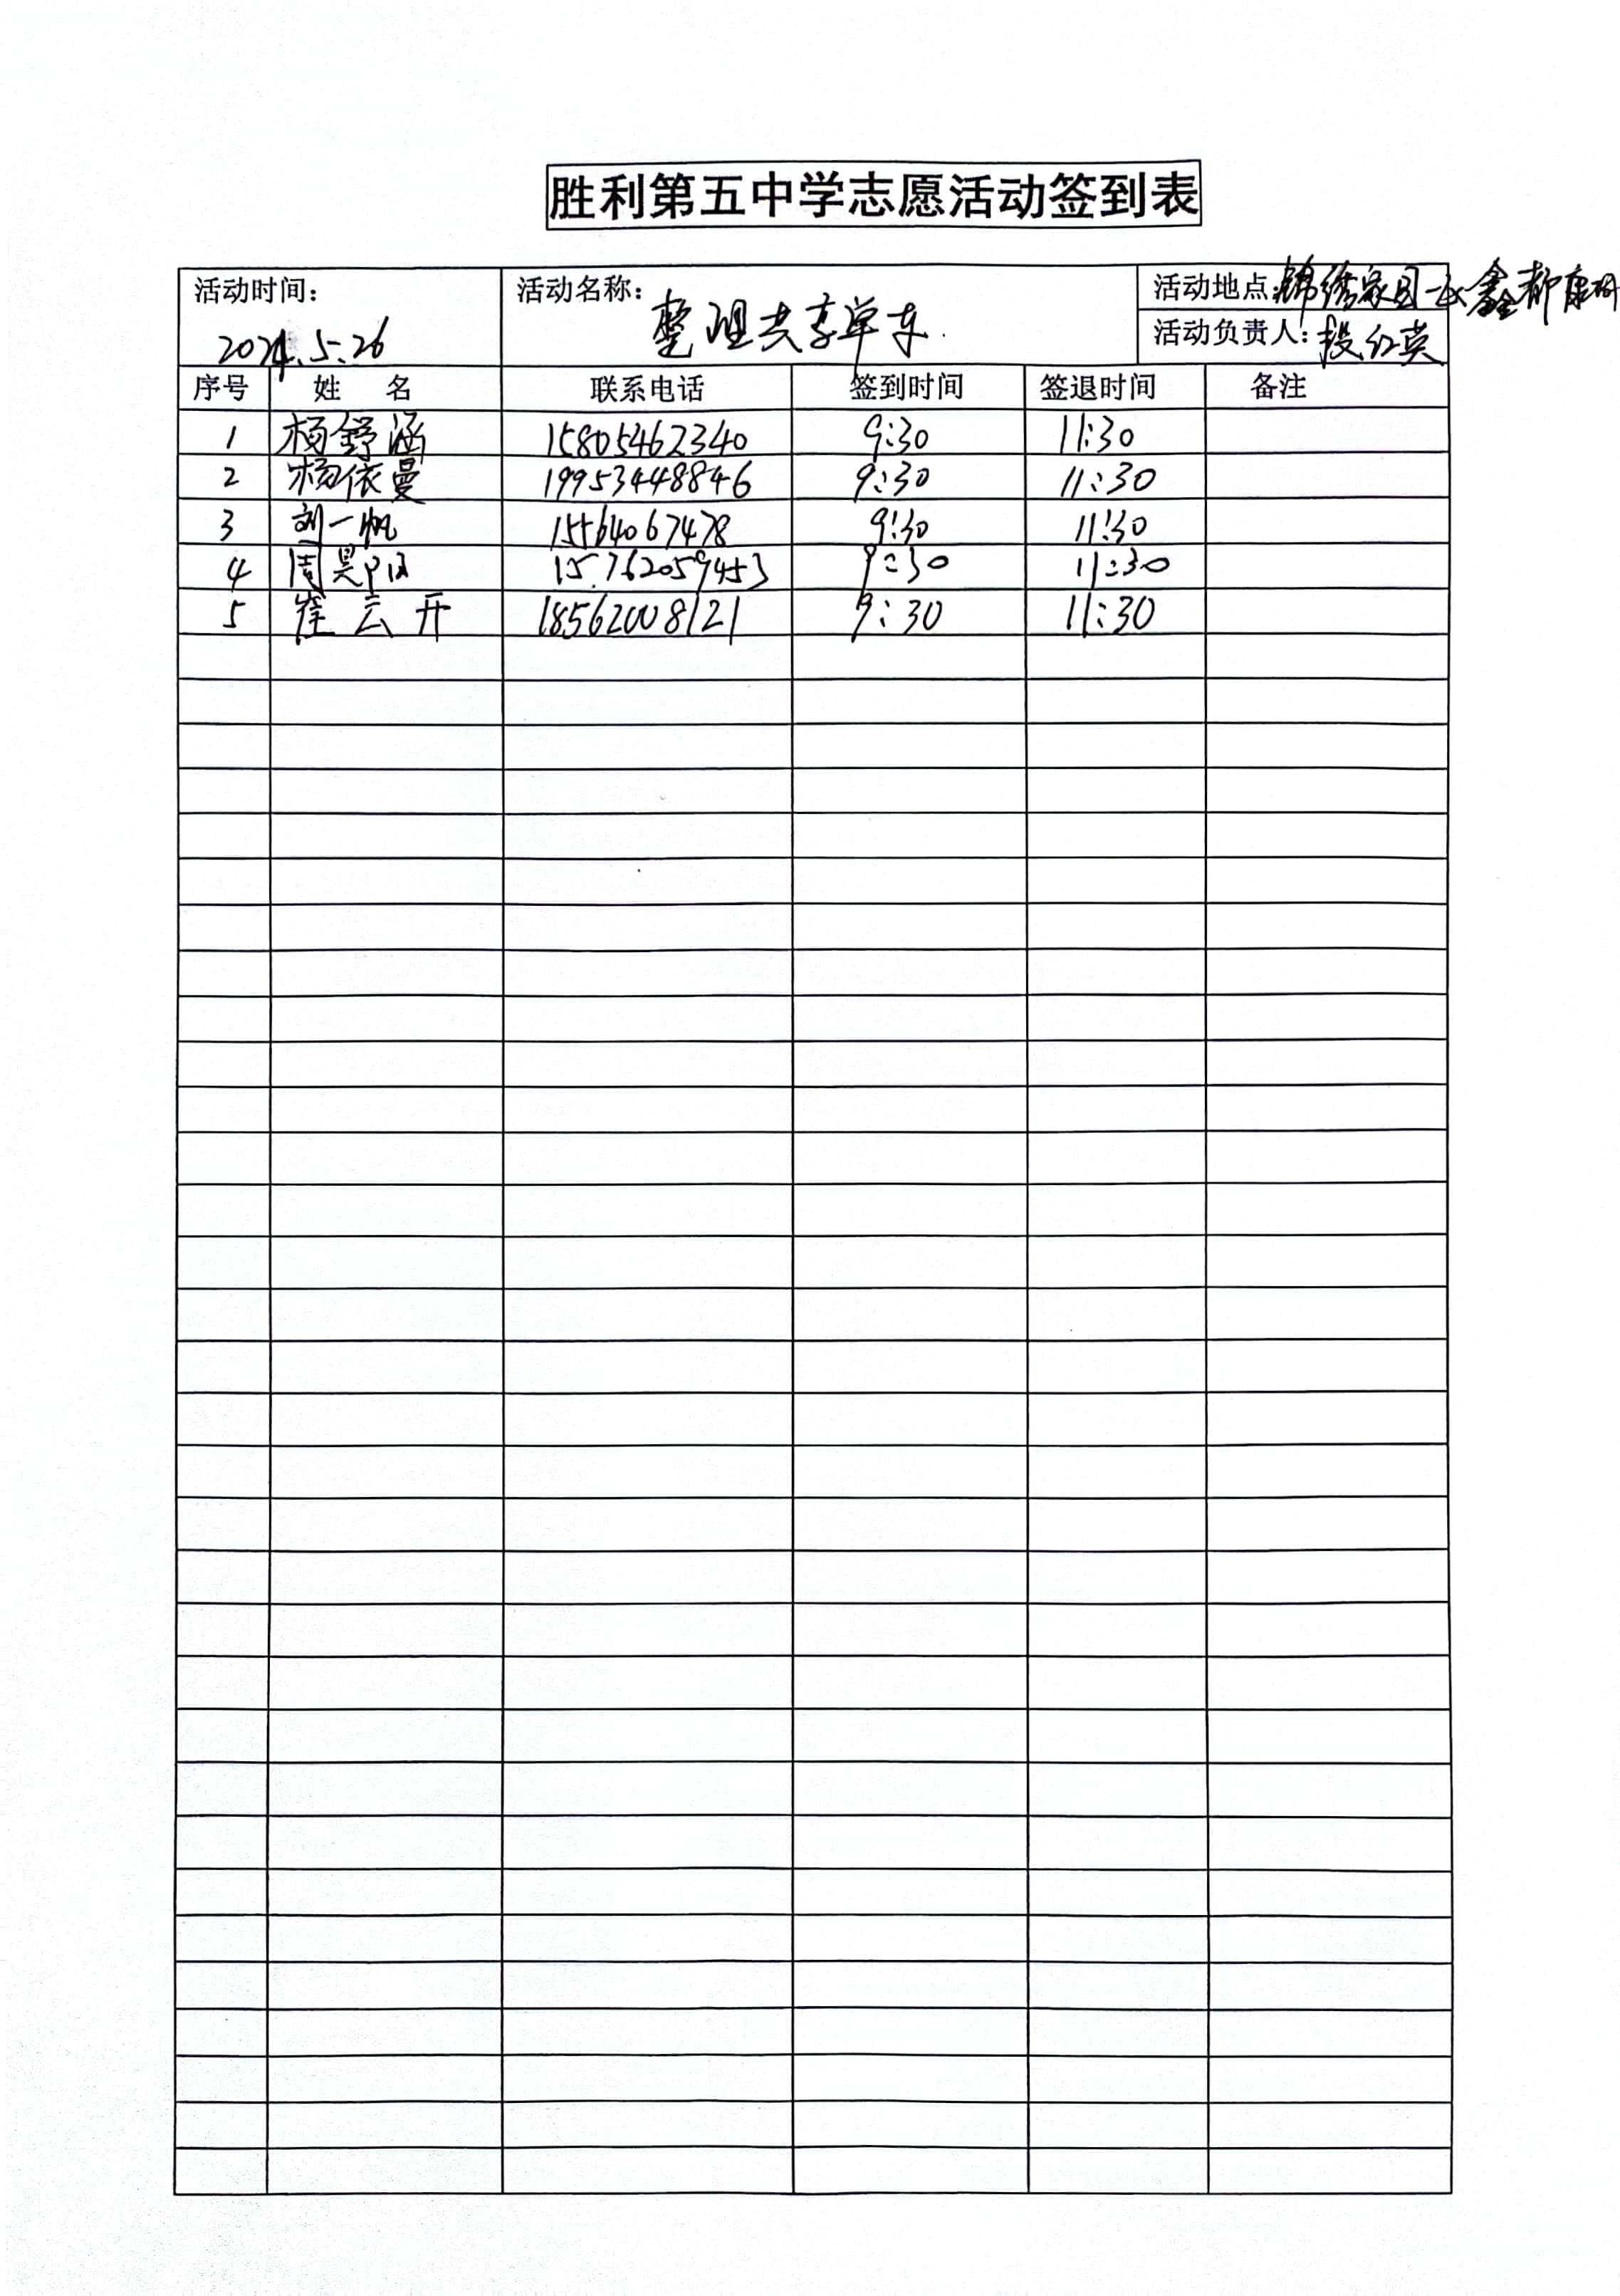 胜利第五中学志愿活动签到表
活动时间: 2024.5.26
活动名称: 整理共享单车
活动地点: 锦绣家园 鑫都康城
活动负责人: 段红英
序号 姓 名 联系电话 签到时间 签退时间 备注
1 杨舒涵 15805462340 9:30 11:30
2 杨依曼 19953448846 9:30 11:30
3 刘一帆 15564067478 9:30 11:30
4 周昊 15762059453 9:30 11:30
5 崔云开 18562008121 9:30 11:30